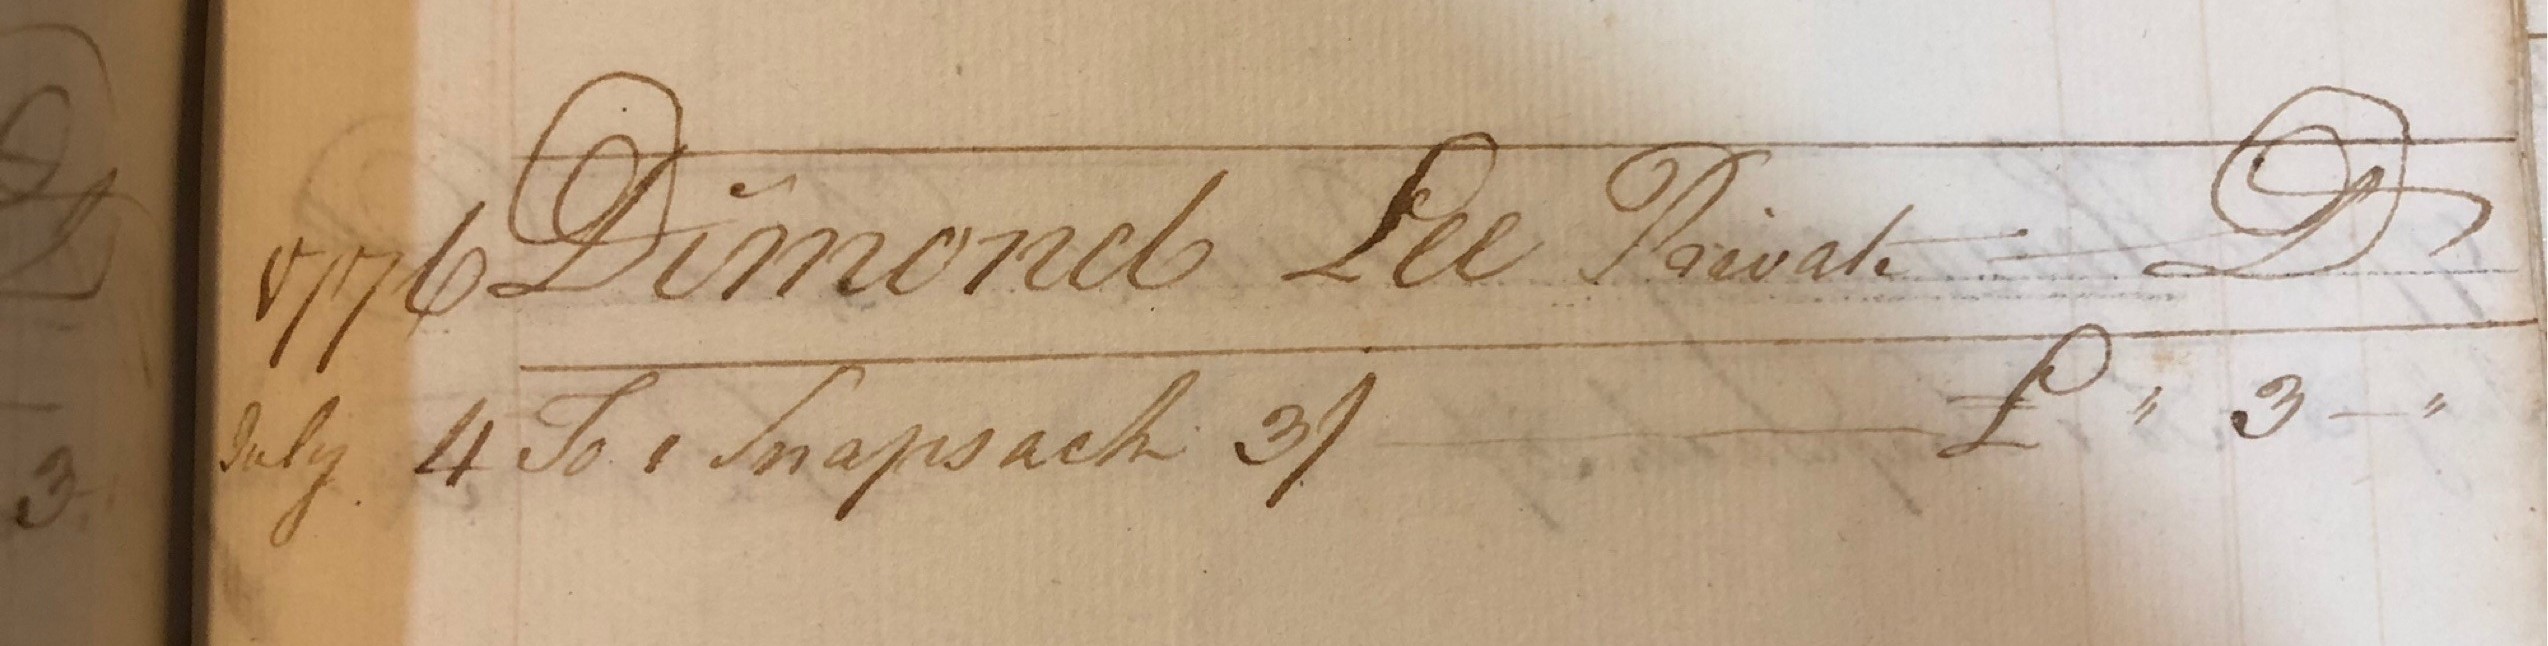 1776 Dimond Lee Private = Dr
July 4 To 1 Snapsack 3/ £ " 3 – "
3